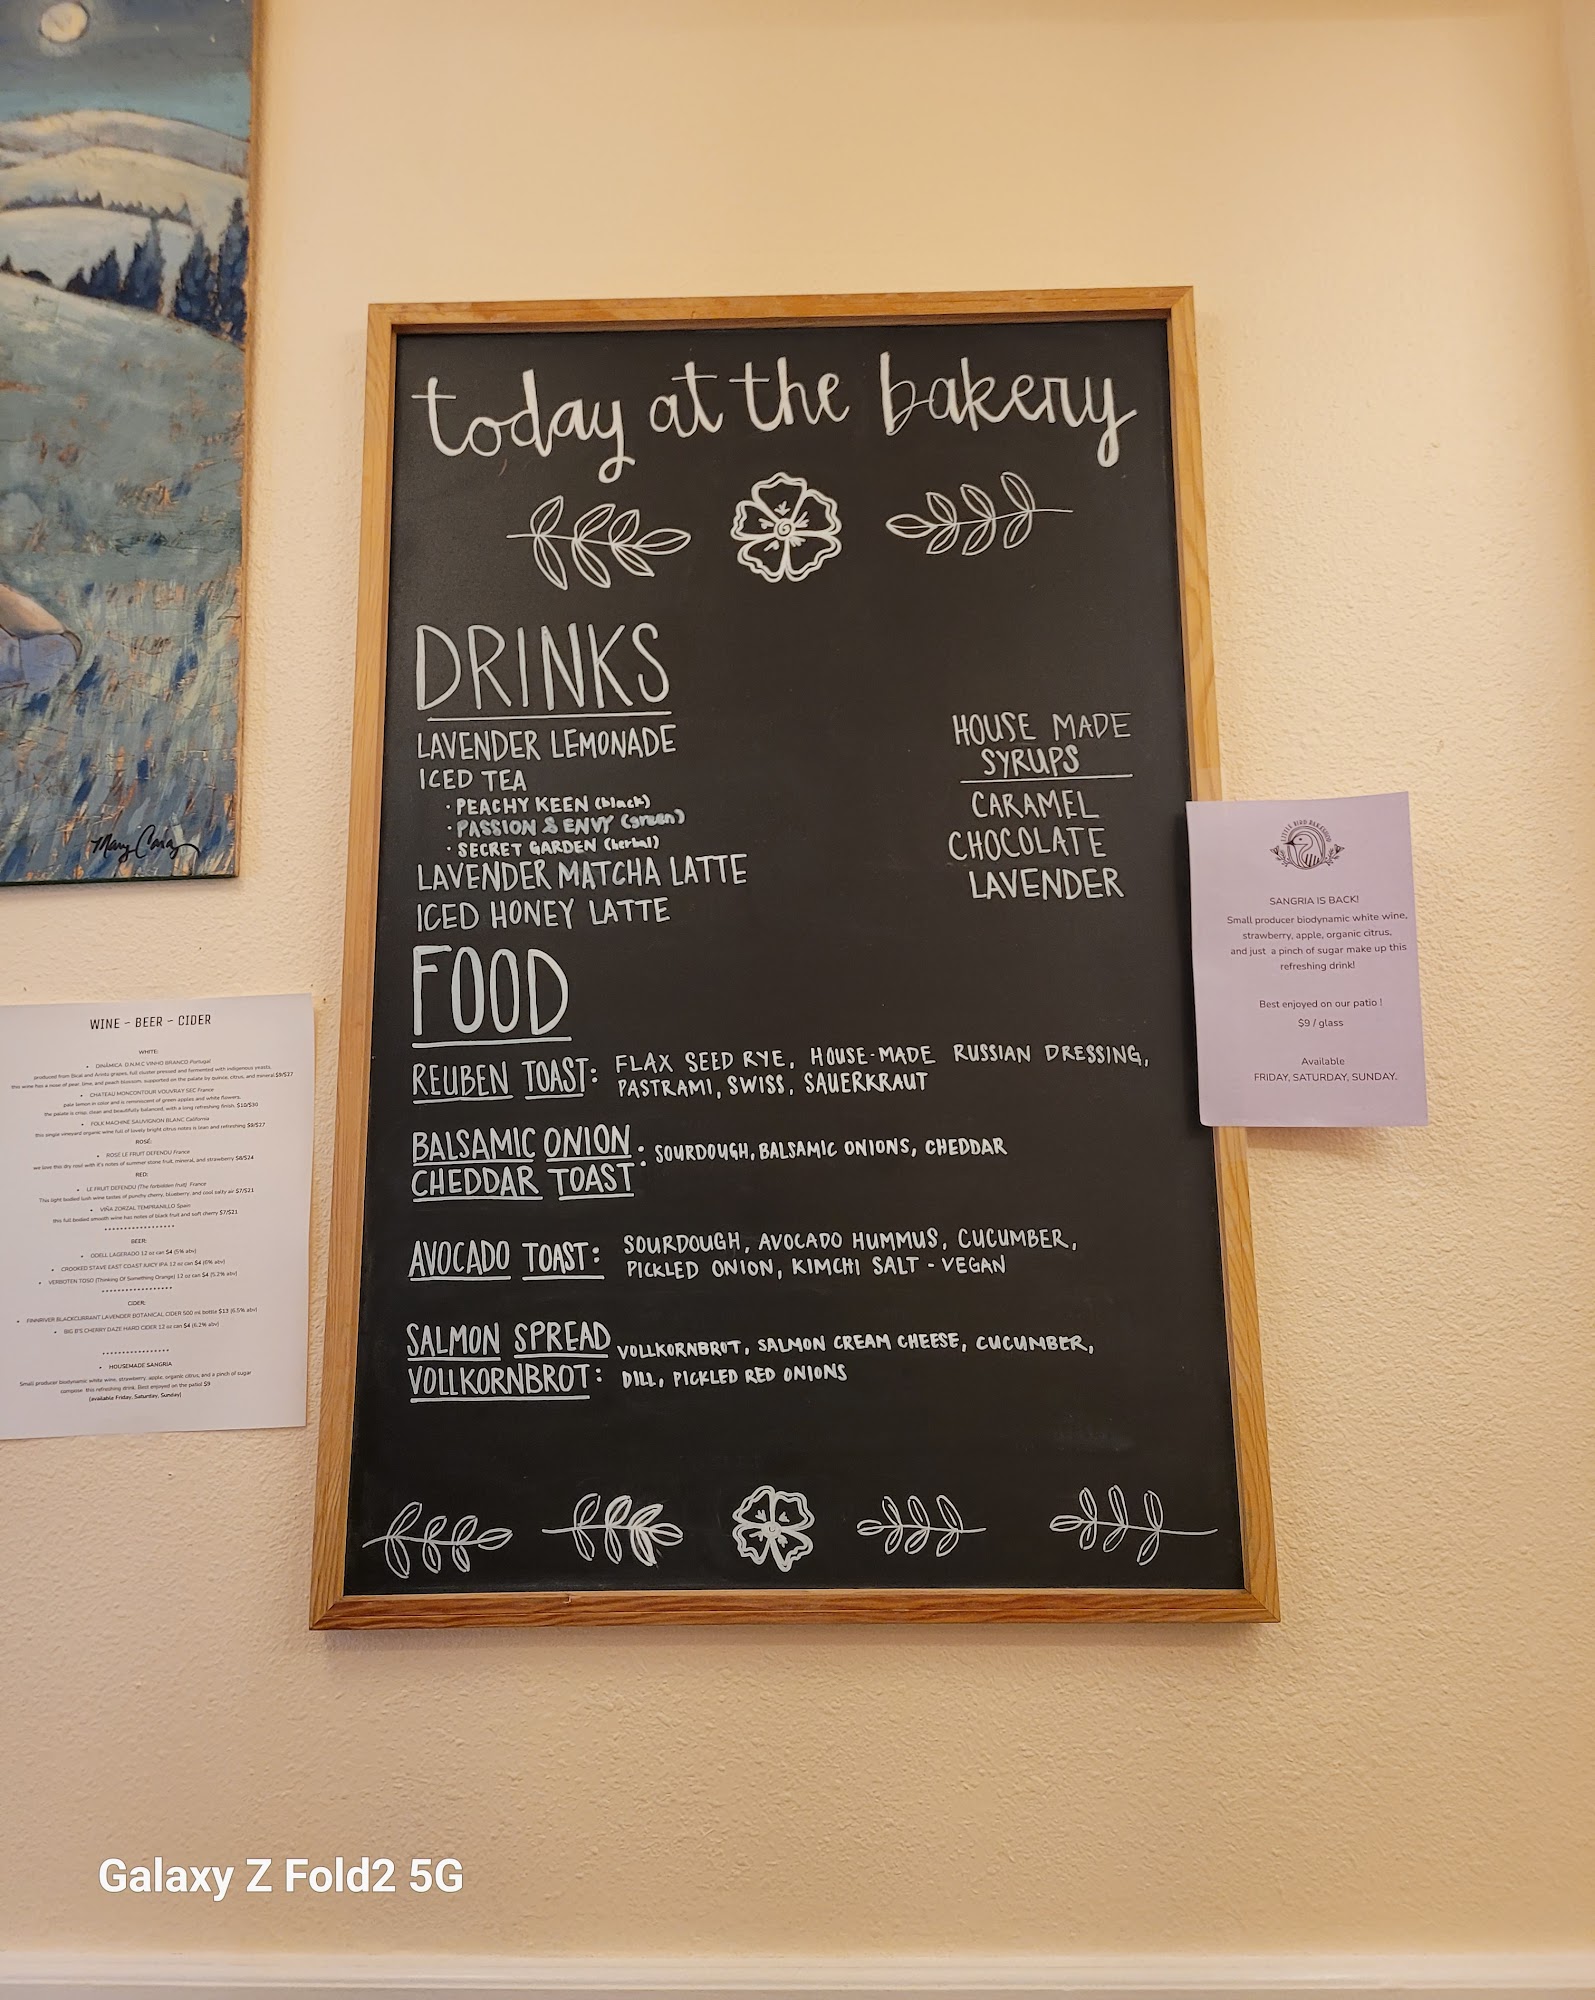 today at the bakery
DRINKS
LAVENDER LEMONADE
ICED TEA
• PEACHY KEEN (black)
• PASSION & ENVY (green)
• SECRET GARDEN (herbal)
LAVENDER MATCHA LATTE
ICED HONEY LATTE
HOUSE MADE
SYRUPS
CARAMEL
CHOCOLATE
LAVENDER
FOOD
REUBEN TOAST: FLAX SEED RYE, HOUSE-MADE RUSSIAN DRESSING,
PASTRAMI, SWISS, SAUERKRAUT
BALSAMIC ONION
CHEDDAR TOAST : SOURDOUGH, BALSAMIC ONIONS, CHEDDAR
AVOCADO TOAST: SOURDOUGH, AVOCADO HUMMUS, CUCUMBER,
PICKLED ONION, KIMCHI SALT - VEGAN
SALMON SPREAD
VOLLKORNBROT: VOLLKORNBROT, SALMON CREAM CHEESE, CUCUMBER,
DILL, PICKLED RED ONIONS
LITTLE BIRD BAKESHOP
SANGRIA IS BACK!
Small producer biodynamic white wine,
strawberry, apple, organic citrus,
and just a pinch of sugar make up this
refreshing drink!
Best enjoyed on our patio !
$9 / glass
Available
FRIDAY, SATURDAY, SUNDAY.
WINE - BEER - CIDER
WHITE:
• DINÂMICA D.N.M.C VINHO BRANCO Portugal
produced from Bical and Arinto grapes, full cluster pressed and fermented with indigenous yeasts,
this wine has a nose of pear, lime, and peach blossom, supported on the palate by quince, citrus, and mineral $9/$27
• CHATEAU MONCONTOUR VOUVRAY SEC France
pale lemon in color and is reminiscent of green apples and white flowers.
the palate is crisp, clean and beautifully balanced, with a long refreshing finish. $10/$30
• FOLK MACHINE SAUVIGNON BLANC California
this single vineyard organic wine full of lovely bright citrus notes is lean and refreshing $9/$27
ROSÉ:
• ROSÉ LE FRUIT DEFENDU France
we love this dry rosé with it's notes of summer stone fruit, mineral, and strawberry $8/$24
RED:
• LE FRUIT DEFENDU (The forbidden fruit) France
This light bodied lush wine tastes of punchy cherry, blueberry, and cool salty air $7/$21
• VIÑA ZORZAL TEMPRANILLO Spain
this full bodied smooth wine has notes of black fruit and soft cherry $7/$21
BEER:
• ODELL LAGERADO 12 oz can $4 (5% abv)
• CROOKED STAVE EAST COAST JUICY IPA 12 oz can $4 (6% abv)
• VERBOTEN TOSO (Thinking Of Something Orange) 12 oz can $4 (5.2% abv)
CIDER:
• FINNRIVER BLACKCURRANT LAVENDER BOTANICAL CIDER 500 ml bottle $13 (6.5% abv)
• BIG B'S CHERRY DAZE HARD CIDER 12 oz can $4 (6.2% abv)
• HOUSEMADE SANGRIA
Small producer biodynamic white wine, strawberry, apple, organic citrus, and a pinch of sugar
compose this refreshing drink. Best enjoyed on the patio! $9
(available Friday, Saturday, Sunday)
Galaxy Z Fold2 5G